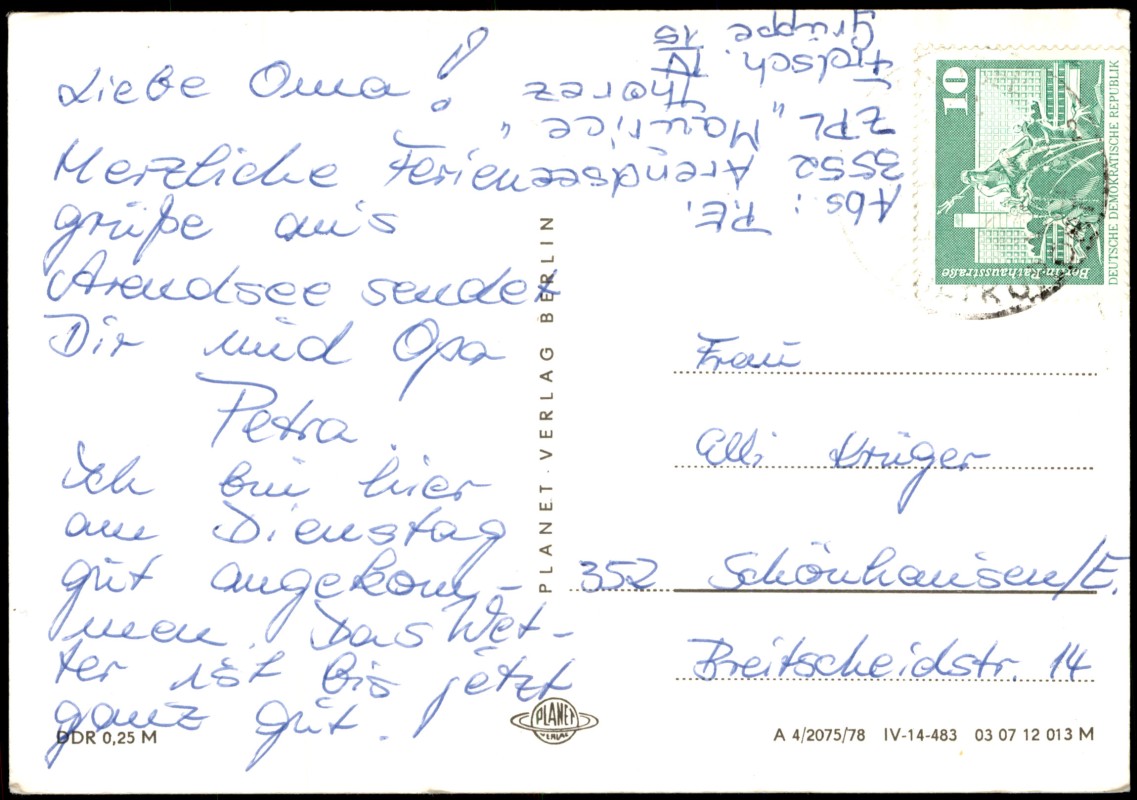 Liebe Oma!
Herzliche Ferien
grüße aus
Arendsee sendet
Dir und Opa
Petra
Ich bin hier
am Dienstag
gut angekom-
men. Das Wet-
ter ist bis jetzt
ganz gut.
Abs.: P.E.
3552 Arendsee
ZPL "Maurice
Thorez"
IV
Gruppe 15
10
Berlin-Rathausstraße
DEUTSCHE DEMOKRATISCHE REPUBLIK
Frau
Elli Krüger
352 Schönhausen/E.
Breitscheidstr. 14
PLANET-VERLAG BERLIN
DDR 0,25 M
PLANET
VERLAG
A 4/2075/78 IV-14-483 03 07 12 013 M